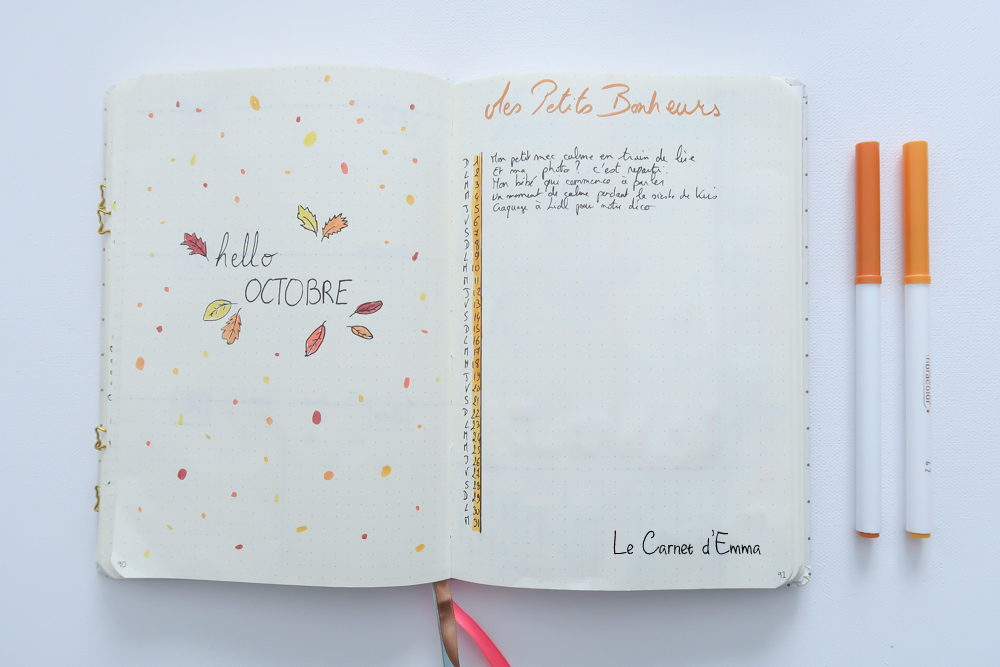 hello
OCTOBRE
90
Mes Petits Bonheurs
D 1 Mon petit mec calme en train de lire
L 2 Et ma photo ? c'est reparti.
M 3 Mon bébé qui commence à parler
M 4 Un moment de calme pendant la sieste de
J 5 Craquage à Lidl pour notre déco
V 6
S 7
D 8
L 9
M 10
M 11
J 12
V 13
S 14
D 15
L 16
M 17
M 18
J 19
V 20
S 21
D 22
L 23
M 24
M 25
J 26
V 27
S 28
D 29
L 30
M 31
Le Carnet d'Emma
91